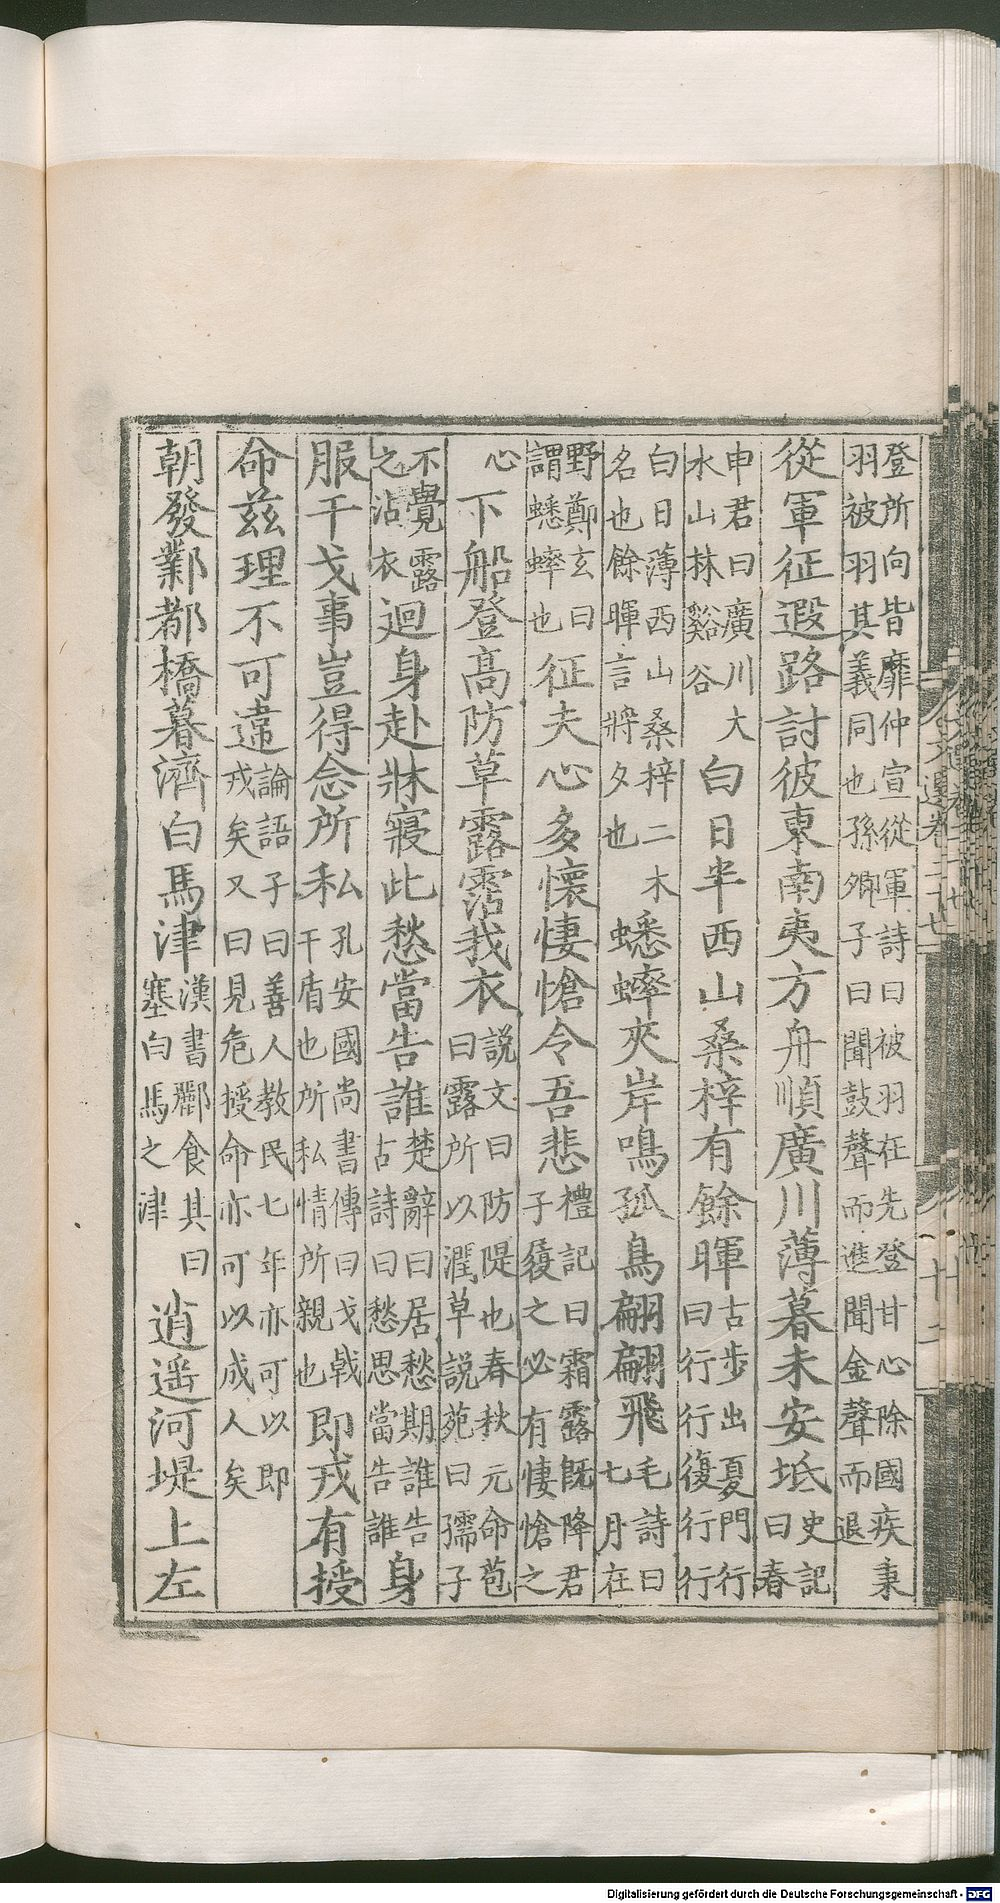 登所向皆靡仲宣從軍詩曰被羽在先登甘心除國疾秉
羽被羽其義同也孫卿子曰聞鼓聲而進聞金聲而退
從軍征遐路討彼東南夷方舟順廣川薄暮未安坻史記
曰春
申君曰廣川大
水山林谿谷
白日半西山桑梓有餘暉古步出夏門行
曰行行復行行
白日薄西山桑梓二木
名也餘暉言將夕也
蟋蟀夾岸鳴孤鳥翩翩飛毛詩曰
七月在
野鄭玄曰
謂蟋蟀也
征夫心多懷悽愴令吾悲禮記曰霜露旣降君
子履之必有悽愴之
心
下船登高防草露霑我衣說文曰防隄也春秋元命苞
曰露所以潤草說苑曰孺子
不覺露
之沾衣
迴身赴牀寢此愁當告誰楚辭曰居愁期誰告
古詩曰愁思當告誰
身
服干戈事豈得念所私孔安國尚書傳曰戈戟
干盾也所私情所親也
即戎有授
命茲理不可違論語子曰善人教民七年亦可以即
戎矣又曰見危授命亦可以成人矣
朝發鄴都橋暮濟白馬津漢書酈食其曰
塞白馬之津
逍遥河堤上左
文選卷二十七
十二
Digitalisierung gefördert durch die Deutsche Forschungsgemeinschaft - DFG